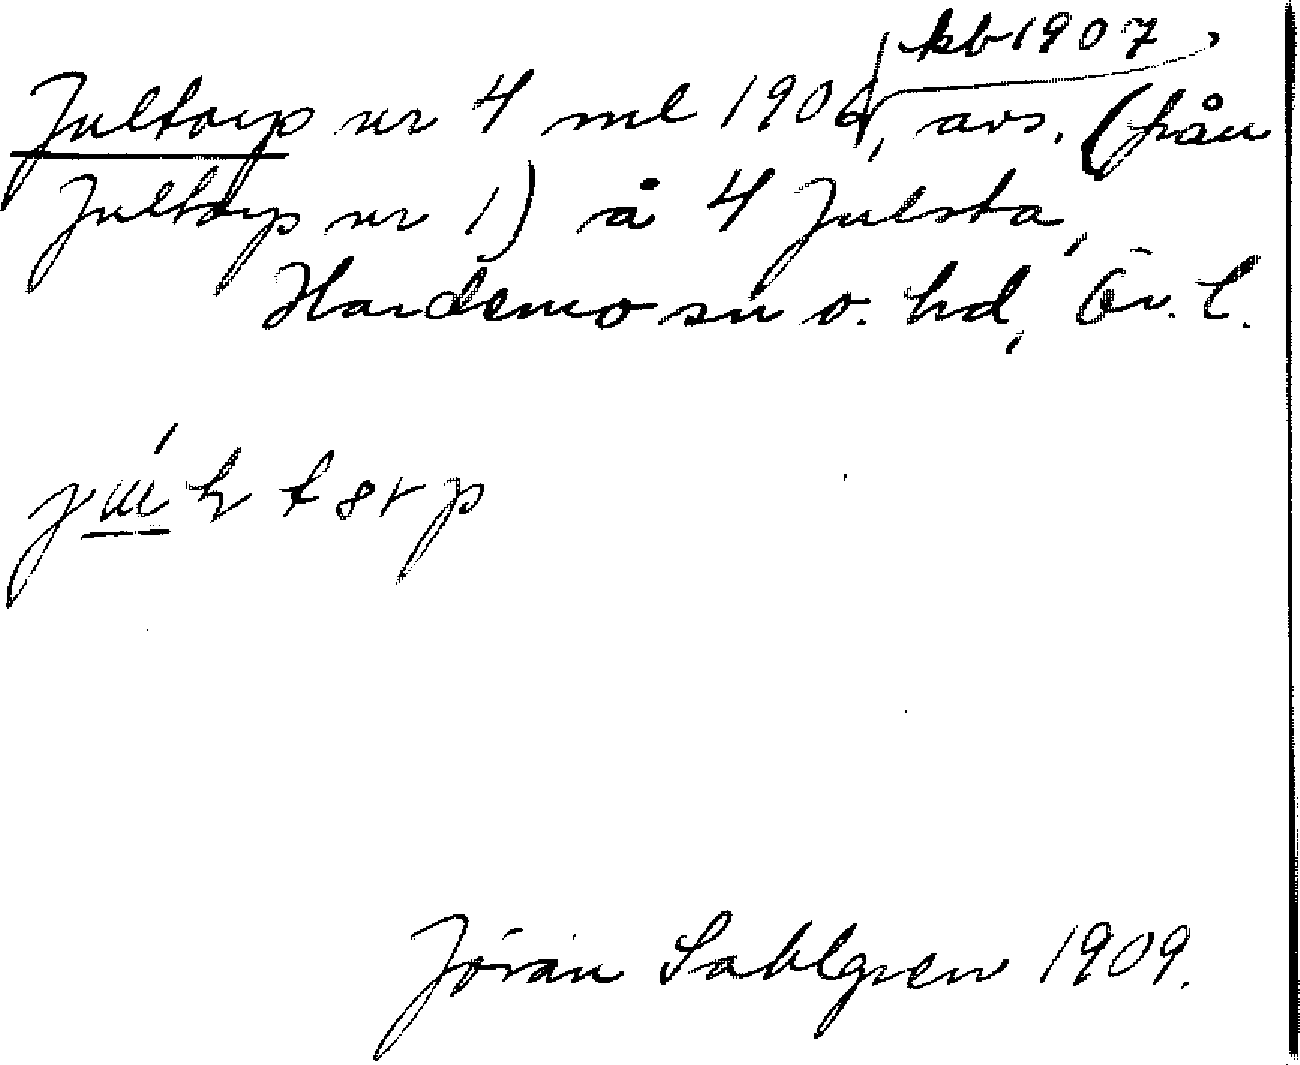 kb 1907
Jultorp nr 4 ml 1906, avs. (från
Jultorp nr 1) å 4 Julsta,
Hardemo sn o. hd, Ör. l.
Jöran Sahlgren 1909.